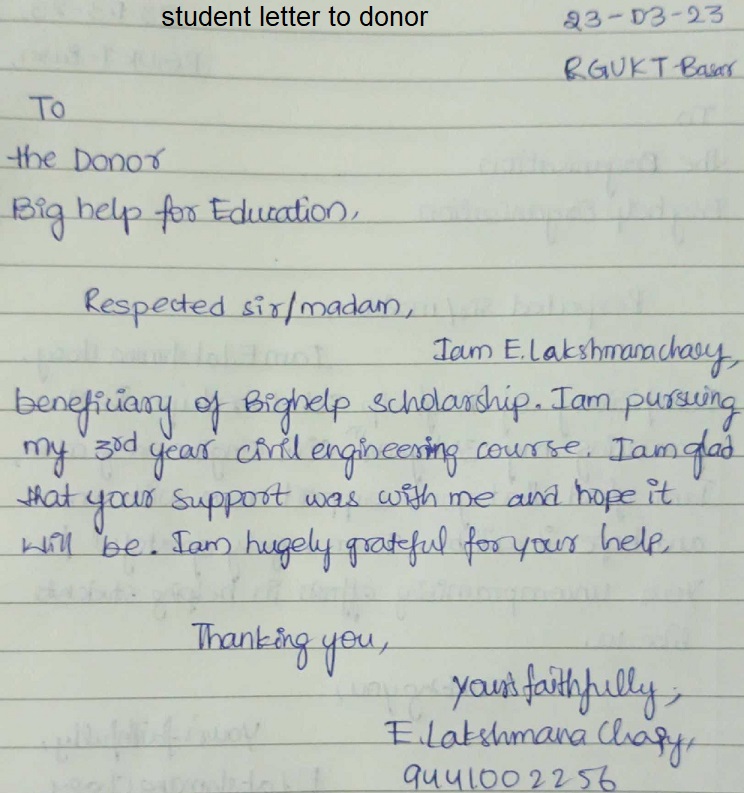 student letter to donor
23-03-23
RGUKT-Basar
To
the Donor
Big help for Education,
Respected sir/madam,
Iam E.Lakshmanachary,
beneficiary of Bighelp scholarship. Iam pursuing
my 3rd year civil engineering course. Iam glad
that your support was with me and hope it
will be. Iam hugely grateful for your help.
Thanking you,
yours faithfully,
E.Lakshmana Chary,
9441002256